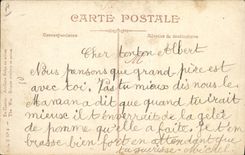 CARTE POSTALE
Correspondance
Adresse du destinataire
Cher tonton Albert
Nous pensons que grand-père est
avec toi. J'as tu mieux dis nous le
Maman a dit que quand te irait
mieux il t'enverrait de la gelée
de pomme qu'elle a faite. Je t'em
brasse bien fort en attendant que
tu guérisse